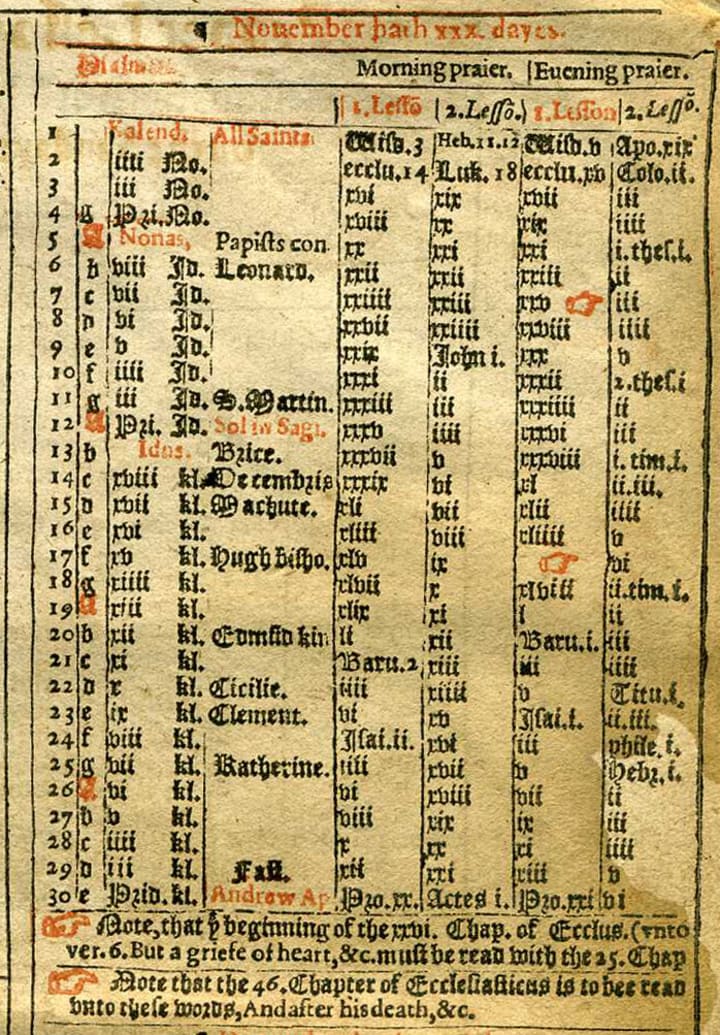 ¶ Nouember hath xxx. dayes.
Psalmes. Morning praier. | Euening praier.
1. Lessō | 2. Lessō. | 1. Lesson | 2. Lessō.
1 Kalend. All Saints Wisd.3 Heb.11.12 Wisd.v Apo.xix
2 iiii No. ecclu.14 Luk. 18 ecclu.xv Colo.ii.
3 iii No. xvi xix xvii iii
4 g Pri. No. xviii xx xix iiii
5 A Nonas, Papists con xx xxi xxi i.thes.i.
6 b viii Id. Leonard. xxii xxii xxiii ii
7 c vii Id. xxiiii xxiii xxv ☞ iii
8 d vi Id. xxvii xxiiii xxviii iiii
9 e v Id. xxix John i. xxx v
10 f iiii Id. xxxi ii xxxii 2.thes.i
11 g iii Id. S. Martin. xxxiii iii xxxiiii ii
12 A Pri. Id. Sol in Sagi. xxxv iiii xxxvi iii
13 b Idus. Brice. xxxvii v xxxviii i.tim.i.
14 c xviii kl. Decembris xxxix vi xl ii.iii.
15 d xvii kl. Machute. xli vii xlii iiii
16 e xvi kl. xliii viii xliiii v
17 f xv kl. Hugh bisho. xlv ix ☞ vi
18 g xiiii kl. xlvii x xlviii ii.tim.i.
19 A xiii kl. xlix xi l ii
20 b xii kl. Edmūd kin li xii Baru.i. iii
21 c xi kl. Baru.2 xiii iii iiii
22 d x kl. Cicilie. iiii xiiii v Titu.i.
23 e ix kl. Clement. vi xv Isai.i. ii.iii.
24 f viii kl. Isai.ii. xvi iii phile.i.
25 g vii kl. Katherine. iiii xvii v Hebr.i.
26 A vi kl. vi xviii vii ii
27 b v kl. viii xix ix iii
28 c iiii kl. x xx xi iiii
29 d iii kl. Fast. xii xxi xiii v
30 e Prid. kl. Andrew Ap Pro.xx. Actes i. Pro.xxi vi
☞ Note, that yͤ beginning of the xxvi. Chap. of Ecclus. (vnto
ver. 6. But a griefe of heart, &c. must be read with the 25. Chap
☞ Note that the 46. Chapter of Ecclesiasticus is to bee read
vnto these words, And after his death, &c.